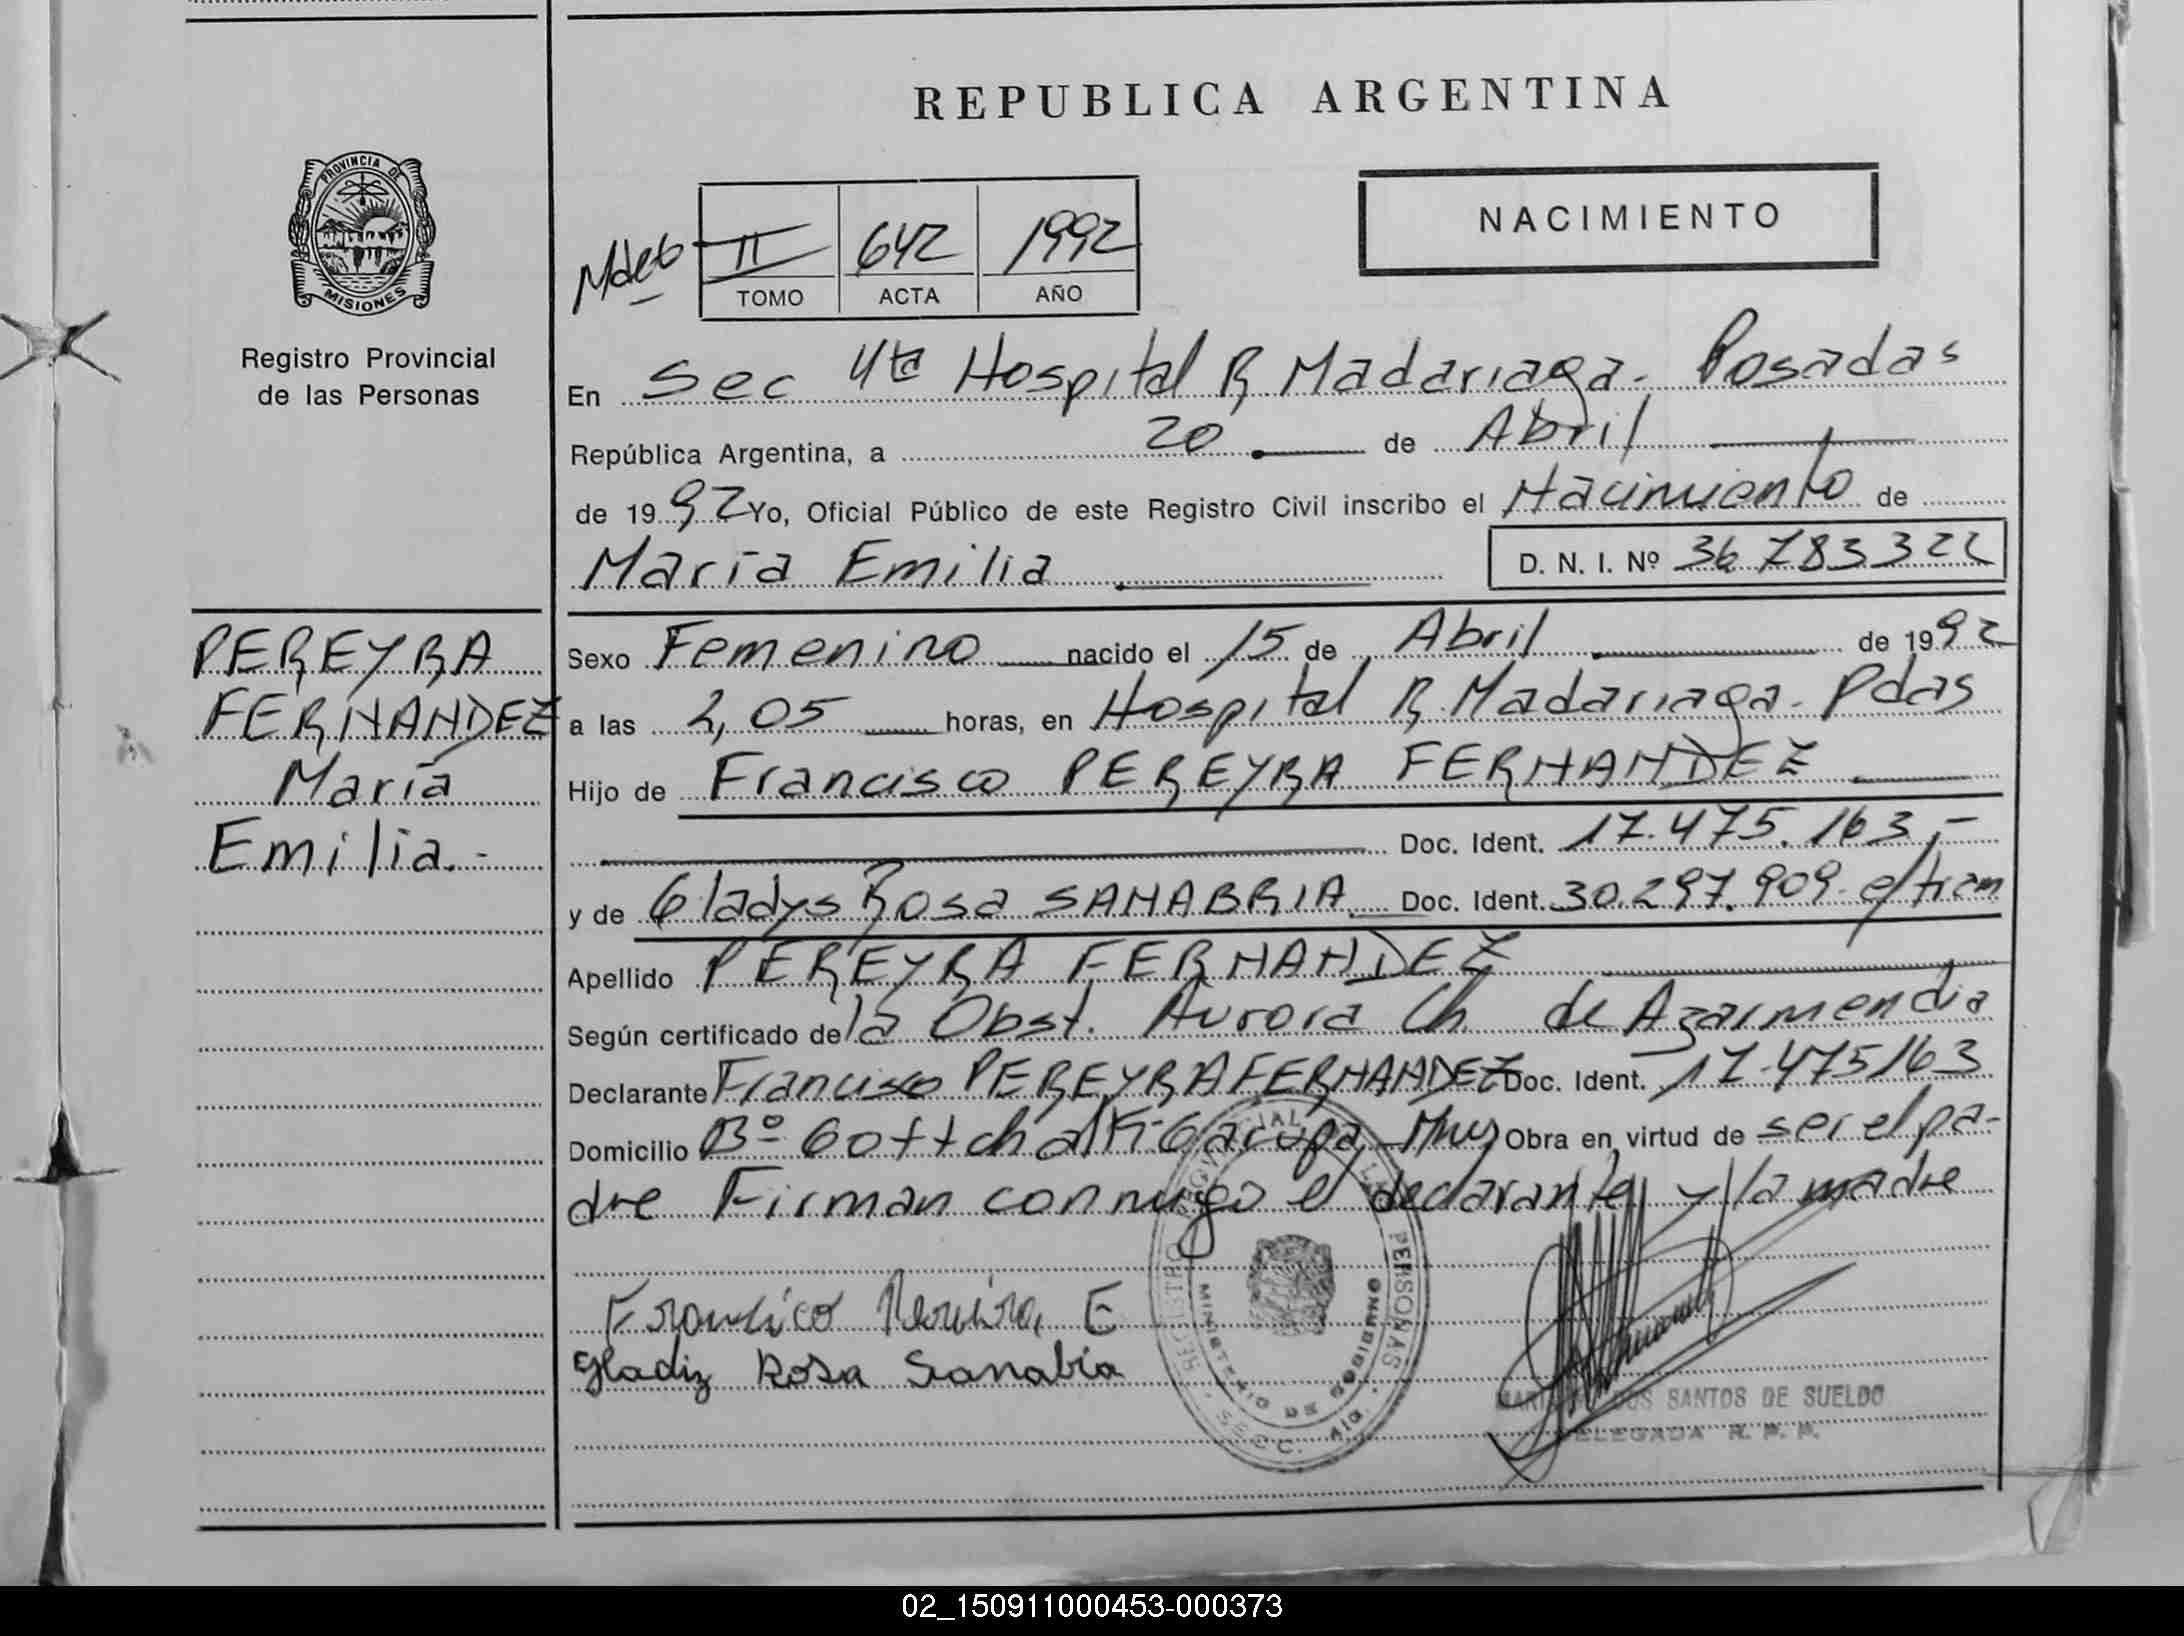 REPUBLICA ARGENTINA
PROVINCIA DE
MISIONES
Registro Provincial
de las Personas
NACIMIENTO
II 642 1992
TOMO ACTA AÑO
En Sec 4ta Hospital R Madariaga - Posadas
República Argentina, a 20 de Abril
de 1992 Yo, Oficial Público de este Registro Civil inscribo el Nacimiento de
María Emilia D. N. I. Nº 36.783322
PEREYRA
FERNANDEZ
María
Emilia.-
Sexo Femenino nacido el 15 de Abril de 1992
a las 2,05 horas, en Hospital R Madariaga - Pdas
Hijo de Francisco PEREYRA FERNANDEZ
Doc. Ident. 17.475.163,-
y de Gladys Rosa SANABRIA Doc. Ident. 30.297.909 e/tram
Apellido PEREYRA FERNANDEZ
Según certificado de la Obst. Aurora Ch de Azarmendia
Declarante Francisco PEREYRA FERNANDEZ Doc. Ident. 17.475163
Domicilio Bº Gottchalk-Garupa Mnes Obra en virtud de ser el pa-
dre Firman conmigo el declarante y la madre
Gladiz Rosa Sanabria
REGISTRO PROVINCIAL DE LAS PERSONAS
MINISTERIO DE GOBIERNO
DOS SANTOS DE SUELDO
DELEGADA R. P. P.
02_150911000453-000373